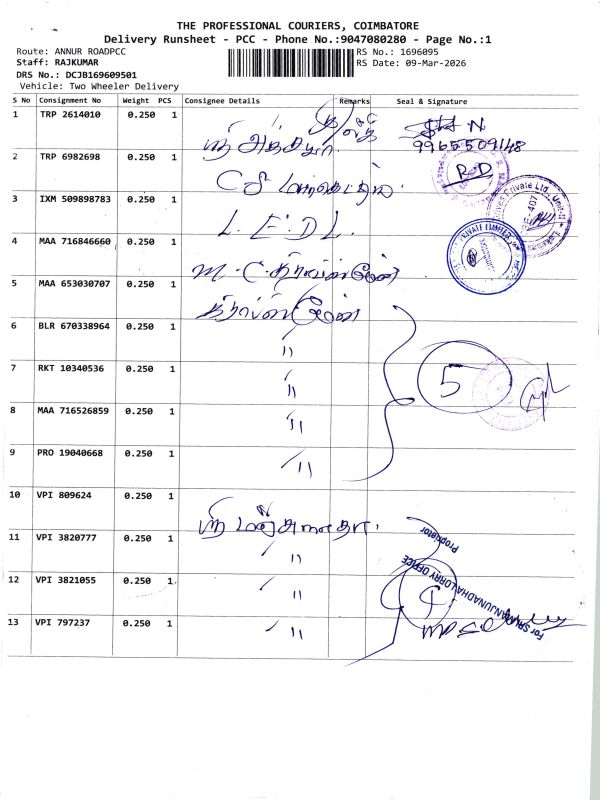 THE PROFESSIONAL COURIERS, COIMBATORE
Delivery Runsheet - PCC - Phone No.:9047080280 - Page No.:1
Route: ANNUR ROADPCC
RS No.: 1696095
Staff: RAJKUMAR
RS Date: 09-Mar-2026
DRS No.: DCJB169609501
Vehicle: Two Wheeler Delivery
S No Consignment No Weight PCS Consignee Details Remarks Seal & Signature
1 TRP 2614010 0.250 1
9965509148
2 TRP 6982698 0.250 1
R.D
3 IXM 509898783 0.250 1 L.E.D.L.
4 MAA 716846660 0.250 1
5 MAA 653030707 0.250 1
6 BLR 670338964 0.250 1 "
7 RKT 10340536 0.250 1 " 5
8 MAA 716526859 0.250 1 "
9 PRO 19040668 0.250 1 "
10 VPI 809624 0.250 1
11 VPI 3820777 0.250 1 "
12 VPI 3821055 0.250 1 " 4
13 VPI 797237 0.250 1 "
For SRI MANJUNADHA LORRY OFFICE
Proprietor